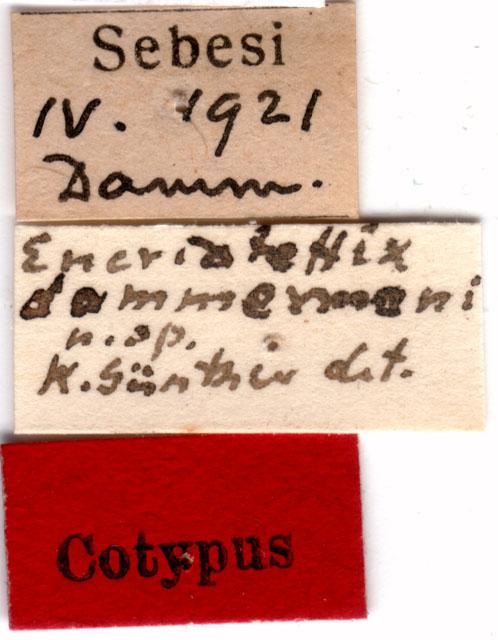 Sebesi
IV. 1921
Damm.
dammermani
n. sp.
K. Günther det.
Cotypus